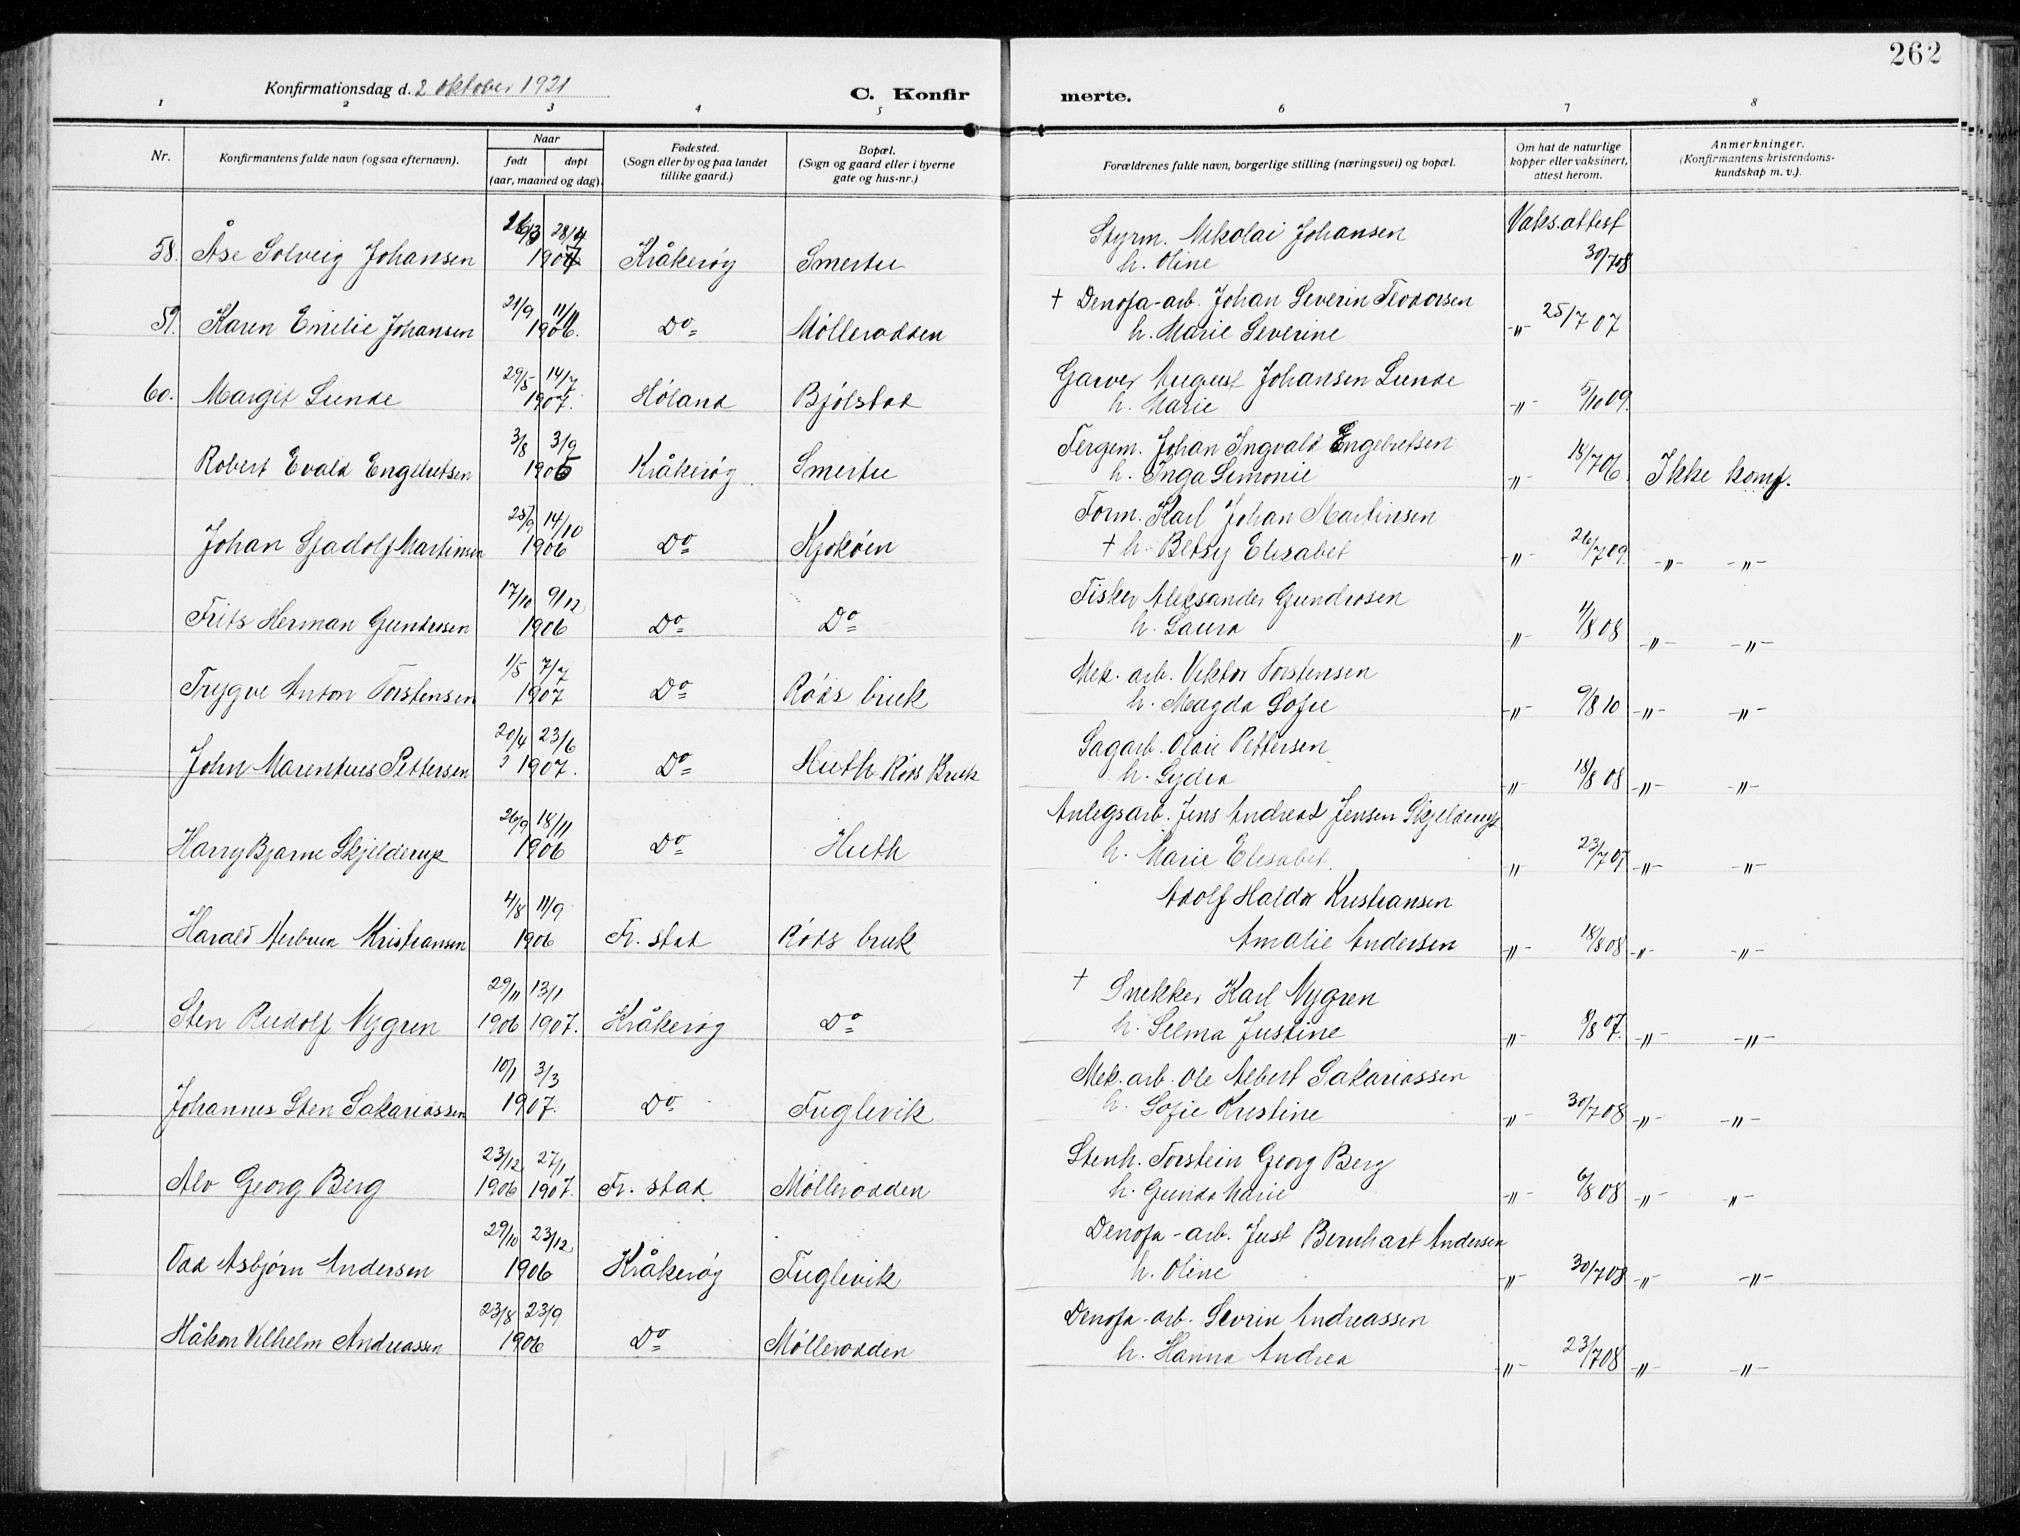 262
Konfirmationsdag d. 2 oktober 1921
C. Konfir merte.
1 2 3 4 5 6 7 8
Nr.
Konfirmantens fulde navn (ogsaa efternavn).
Naar
født
døpt
(aar, maaned og dag).
Fødested.
(Sogn eller by og paa landet
tillike gaard.)
Bopæl.
(Sogn og gaard eller i byerne
gate og hus-nr.)
Forældrenes fulde navn, borgerlige stilling (næringsvei) og bopæl.
Om hat de naturlige
kopper eller vaksinert,
attest herom.
Anmerkninger.
(Konfirmantens kristendoms-
kundskap m. v.).
26/3 28/4 Styrm. Nikolai Johansen Vaks.attest
58. Åse Solveig Johansen 1907 Kråkerøy Smertu h. Oline 30/7 08
21/9 11/11 † Denofa-arb. Johan Severin Teodorsen
59. Karen Emilie Johansen 1906. Do Møllerodden h. Marie Severine -"- 25/7 07
29/5 14/7 Garver August Johansen Lunde
60. Margit Lunde 1907. Høland Bjølstad h. Marie -"- 5/10 09.
3/8 3/9 Fergem. Johan Ingvald Engebretsen
Robert Evald Engebretsen 1905 Kråkerøy Smertu h. Inga Simonie -"- 18/7 06. Ikke komf.
25/9 14/10 Form. Karl Johan Martinsen
Johan Sfadolf Martinsen 1906 Do Kjøkøen † h. Betsy Elisabet -"- 26/7 09. -"- -"-
17/10 9/12 Fisker Aleksander Gundrosen
Frits Herman Gundrosen 1906 Do Do h. Laura -"- 4/8 08 -"- -"-
1/5 7/7 Mek. arb. Viktor Torstensen
Trygve Anton Torstensen 1907 Do Røds bruk h. Magda Sofie -"- 9/8 10 -"- -"-
20/4 23/6 Sagarb. Olai Pettersen
John Marentius Pettersen 1907. Do Huth Røds Bruk h. Lydia -"- 18/8 08 -"- -"-
26/9 18/11 Anlegsarb. Jens Andreas Jensen Skjelderup
Harry Bjarne Skjelderup 1906 Do Huth h. Marie Elisabet. " 23/7 07 -"- -"-
4/8 11/9 Adolf Haldor Kristiansen
Harald Kristiansen 1906 Fr. stad Røds bruk Amalie Andersen -"- 18/8 08 -"- -"-
29/11 13/1 † Snekker Karl Nygren
Sten Rudolf Nygren 1906 1907. Kråkerøy Do h. Selma Justine -"- 8/8 07. -"- -"-
10/1 3/3 Mek. arb. Ole Albert Sakariassen
Johannes Sten Sakariassen 1907. Do Fuglevik h. Sofie Kristine -"- 30/7 08 -"- -"-
23/12 27/1 Stenh. Torstein Georg Berg
Alv Georg Berg 1906 1907. Fr. stad Møllerodden h. Gunda Marie -"- 6/8 08 -"- "-
29/10 23/12 Denofa-arb. Just Bernhart Andersen
Odd Asbjørn Andersen 1906 Kråkerøy Fuglevik h. Oline -"- 30/7 08 -"- -"-
23/8 23/9 Denofa-arb. Sevrin Andreassen
Håkon Vilhelm Andreassen 1906 Do Møllerodden h. Hanna Andrea -"- 23/7 08 -"- -"-